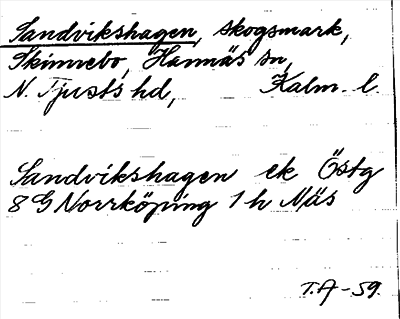 Sandvikshagen, skogsmark,
Skinnebo, Hannäs sn,
N. Tjusts hd, Kalm. l.
Sandvikshagen ek Östg
8 G Norrköping 1 h Näs
T.A-59.